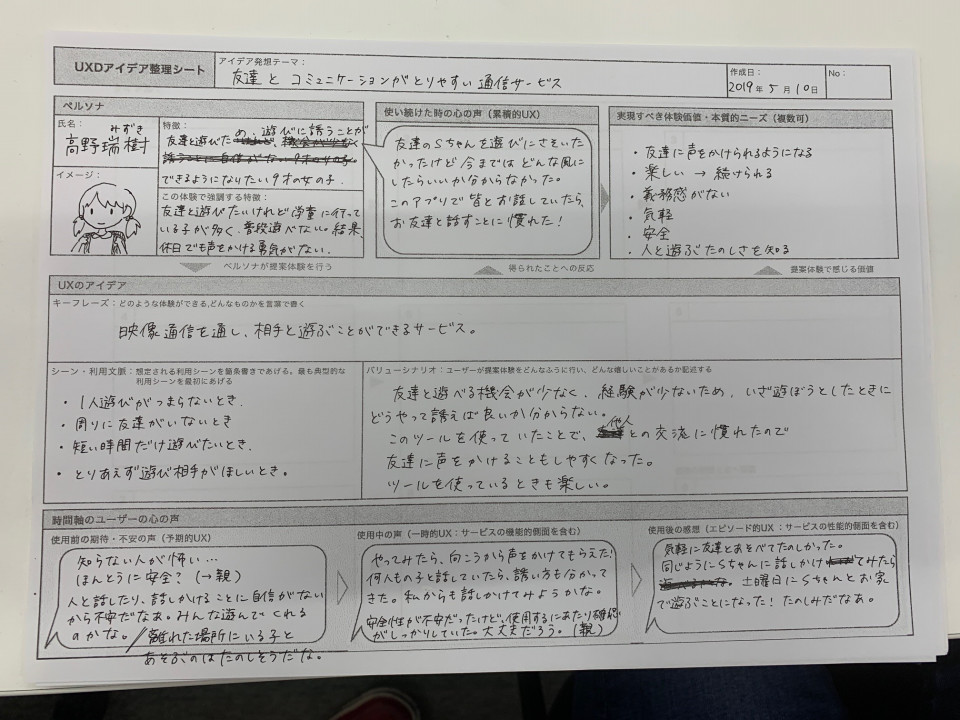 UXDアイデア整理シート
アイデア発想テーマ：
友達とコミュニケーションがとりやすい通信サービス
作成日：
2019年5月10日
No：
ペルソナ
氏名：
みずき
高野瑞樹
イメージ：
特徴：
友達と遊びたい
め、遊びに誘うことが
できるようになりたい9才の女の子.
この体験で強調する特徴：
友達と遊びたいけれど学童に行って
いる子が多く、普段遊べない。結果、
休日でも声をかける勇気がない.
使い続けた時の心の声（累積的UX）
友達のSちゃんを遊びにさそいた
かったけど今まではどんな風に
したらいいか分からなかった。
このアプリで皆とお話していたら、
お友達と話すことに慣れた！
実現すべき体験価値・本質的ニーズ（複数可）
・友達に声をかけられるようになる
・楽しい → 続けられる
・義務感がない
・気軽
・安全
・人と遊ぶたのしさを知る
ペルソナが提案体験を行う
得られたことへの反応
提案体験で感じる価値
UXのアイデア
キーフレーズ：どのような体験ができる,どんなものかを言葉で書く
映像通信を通し、相手と遊ぶことができるサービス。
シーン・利用文脈：想定される利用シーンを箇条書きであげる。最も典型的な
利用シーンを最初にあげる
・1人遊びがつまらないとき.
・周りに友達がいないとき
・短い時間だけ遊びたいとき.
・とりあえず遊び相手がほしいとき。
バリューシナリオ：ユーザーが提案体験をどんなふうに行い、どんな嬉しいことがあるか記述する
友達と遊べる機会が少なく、経験が少ないため、いざ遊ぼうとしたときに
どうやって誘えば良いか分からない。
このツールを使っていたことで、他人との交流に慣れたので
友達に声をかけることもしやすくなった。
ツールを使っているときも楽しい。
時間軸のユーザーの心の声
使用前の期待・不安の声（予期的UX）
知らない人が怖い…
ほんとうに安全？（→親）
人と話したり、話しかけることに自信がない
から不安だなぁ。みんな遊んでくれる
のかな。/離れた場所にいる子と
あそぶのはたのしそうだな。
使用中の声（一時的UX：サービスの機能的側面を含む）
やってみたら、向こうから声をかけてもらえた！
何人もの子と話していたら、誘い方も分かって
きた。私からも話しかけてみようかな。
安全性が不安だったけど、使用するにあたり確認
がしっかりしていた。大丈夫だろう。（親）
使用後の感想（エピソード的UX：サービスの性能的側面を含む）
気軽に友達とあそべてたのしかった。
同じようにSちゃんに話しかけてみたら
土曜日にSちゃんとお家
で遊ぶことになった！たのしみだなぁ。